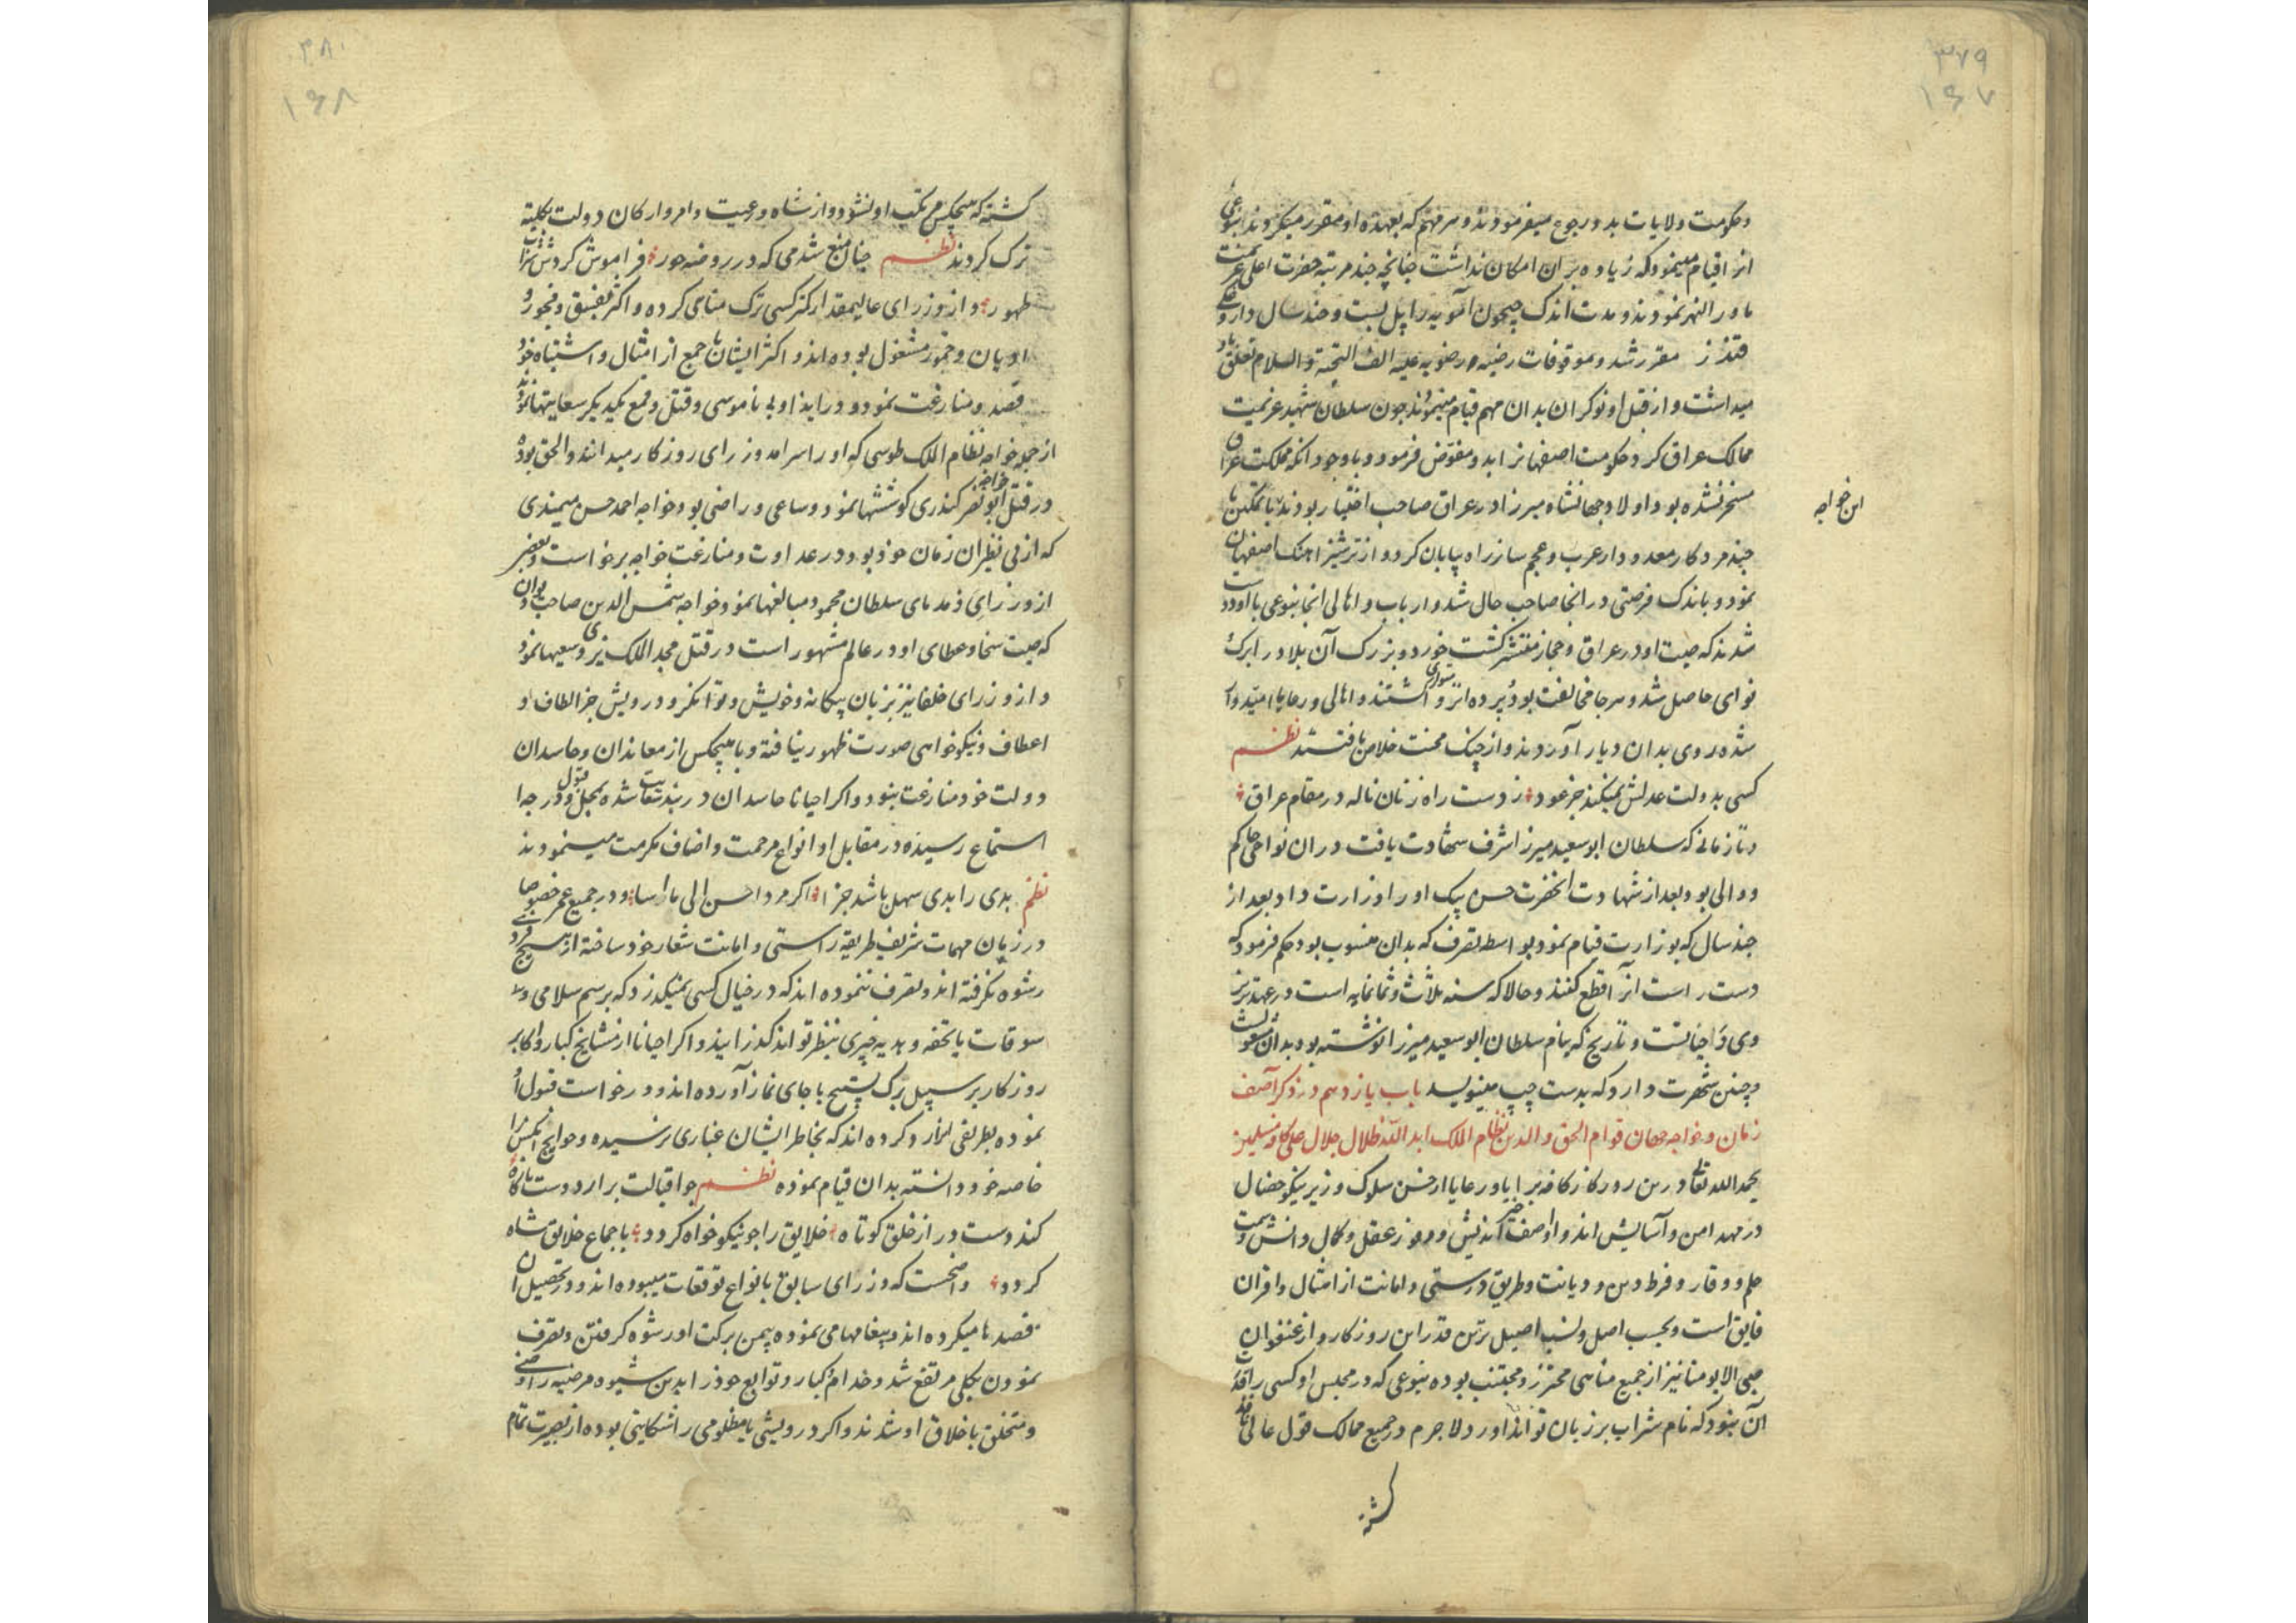 ۳۷۹
۱۶۷
وحکومت ولایات بدو رجوع میفرمودند و هر مهم که بعهده او مقرر میکردند بنوعی
از اقیام مینمود که زیاده بر آن امکان نداشت چنانچه چند مرتبه حضرت اعلی عزیمت
ماورالنهر نمودند و مدت اندک جیحون آمویه را پل بست و چند سال داروغکی
قندز مقرر شد و موقوفات رضیه رضویه علیه الف التحیة والسلام تعلق باو
میداشت و از قبل او نوکران بدان مهم قیام مینمودند چون سلطان شهید عزیمت
ممالک عراق کرد حکومت اصفهانرا بدو مفوض فرمود و با وجود آنکه مملکت عراق
مسخر نشده بود و اولاد جهانشاه میرزا در عراق صاحب اختیار بودند با تمکین با
این خواجه
چند مرد کار معدود از عرب و عجم ساز راه بیابان کرد و از ترشیز آهنک اصفهان
نمود و باندک فرصتی در انجا صاحب حال شد و ارباب و اهالی انجا بنوعی با او دوست
شدند که صیت او در عراق و حجاز منتشر کشت خورد و بزرک آن بلاد را برک
نوای حاصل شد و هر جا مخالفت بود پرده از رو اشتند و اهالی و رعایا امیدوار
شده روی بدان دیار آوردند و از چنک محنت خلاص یافتند نظم
کسی بدولت عدلش نمیکند جز عود ز دست راه زنان ناله در مقام عراق
و تا زمانی که سلطان ابوسعید میرزا شرف شهادت یافت در ان نواحی حاکم
و والی بود و بعد از شهادت انحضرت حسن بیک او را وزارت داد و بعد از
چند سال که بوزارت قیام نمود بواسطه تصرف که بدان منسوب بود حکم فرمود که
دست راست انرا قطع کنند و حالا که سنه ثلاث و ثمانمایه است در عهد تبریز
وی در حیاتست و تاریخ که بنام سلطان ابوسعید میرزا نوشته بود بدان مشغولست
و چنین شهرت دارد که بدست چپ مینویسد باب یازدهم در ذکر آصف
زمان و خواجه جهان قوام الحق والدین نظام الملک ابد الله ظلال جلاله علی کافه مسلمین
بحمد الله تعالی درین روزکار کافه برایا و رعایا از حسن سلوک وزیر نیکو خصال
در مهد امن و آسایش اند و آصف خیر اندیش و موفور عقل و کمال دانش و سمت
حلم و وقار و فرط دین و دیانت و طریق درستی و امانت از امثال و اقران
فایق است و بحسب اصل و نسب اصیل ترین قدر این روزکار و از عنفوان
صبی الا یومنا نیز از جمیع مناهی محترز و مجتنب بوده بنوعی که در مجلس او کسی را قدرت
آن نبود که نام شراب بر زبان تواند آورد لاجرم در جمیع ممالک قول عالی نافذ
کشته
۳۸۰
۱۶۸
کشته که هیچکس مرتکب او نشود و از شاه و رعیت و امرا و ارکان دولت بکلیه
ترک کردند نظم چنان منع شد می که در روضه حور فراموش کردش شرابا
طهور و از وزرای عالیمقدار کمتر کسی ترک مناهی کرده و اکثر بفسق و فجور و
ادیان و خمور مشغول بوده اند و اکثر ایشان با جمع از امثال و اشباه خود
قصد و منازعت نموده و در ایذا و بی ناموسی و قتل و قمع یکدیکر سعایتها نموده
از جمله خواجه نظام الملک طوسی که او را سرآمد وزرای روزکار میدانند والحق بوده
در قتل خواجه ابو نصر کندری کوششها نمود و ساعی و راضی بود و خواجه احمد حسن میمندی
که از بی نظیران زمان خود بود در عداوت و منازعت خواجه برخاست و بعضی
از وزرای و ندمای سلطان محمود مبالغها نمود و خواجه شمس الدین صاحب دیوان
که صیت سخا و عطای او در عالم مشهور است در قتل مجد الملک یزدی سعیها نمود
و از وزرای خلفا نیز بزبان بیکانه و خویش و توانکر و درویش جز الطاف و
اعطاف و نیکو خواهی صورت ظهور نیافته و با هیچکس از معاندان و حاسدان
دولت خود منازعت ننموده و اکر احیانا حاسدان در بند شقاوت شده بمحل قبول و درجه
استماع رسیده در مقابل او انواع مرحمت و اصناف مکرمت مینمودند
نظم بدی را بدی سهل باشد جزا اکر مردی احسن الی من اسا و در جمیع عمر خصوصا
در زمان مهمات شریف طریقه راستی و امانت شعار خود ساخته از هیچ فردی
رشوه نکرفته اند و تصرف ننموده اند که در خیال کسی نمیکذرد که برسم سلامی و
سوقات یا تحفه و هدیه چیزی بنظر تواند کذرانید و اکر احیانا از مشایخ کبار و اکابر
روزکار بر سبیل تبرک تسبیح یا جای نماز آورده اند و درخواست قبول او
نموده بطریقی انرا رد کرده اند که بخاطر ایشان غباری نرسیده و حوایج انکس را
خاصه خود دانسته بدان قیام نموده نظم چو اقبالت برآرد دست ناکاه
کند دست دراز خلق کوتاه خلایق را چو نیکو خواه کردد باجماع خلایق شاه
کردد واضحست که وزرای سابق بانواع توقعات میبوده اند و در تحصیل آن
قصدها میکرده اند و پیغامها می نموده بیمن برکت او رشوه کرفتن و تصرف
نمودن بکلی مرتفع شد و خدام کبار و توابع خود را بدین شیوه مرضیه راضی
و متخلق باخلاق او شدند و اکر درویشی یا مظلومی را شکایتی بوده از بصیرت تمام